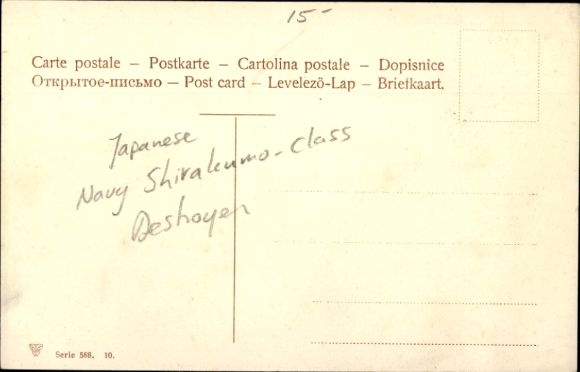 15-
Carte postale – Postkarte – Cartolina postale – Dopisnice
Открытое-письмо – Post card – Levelező-Lap – Briefkaart.
Japanese
Navy Shirakumo-Class
Destroyer
Serie 588. 10.